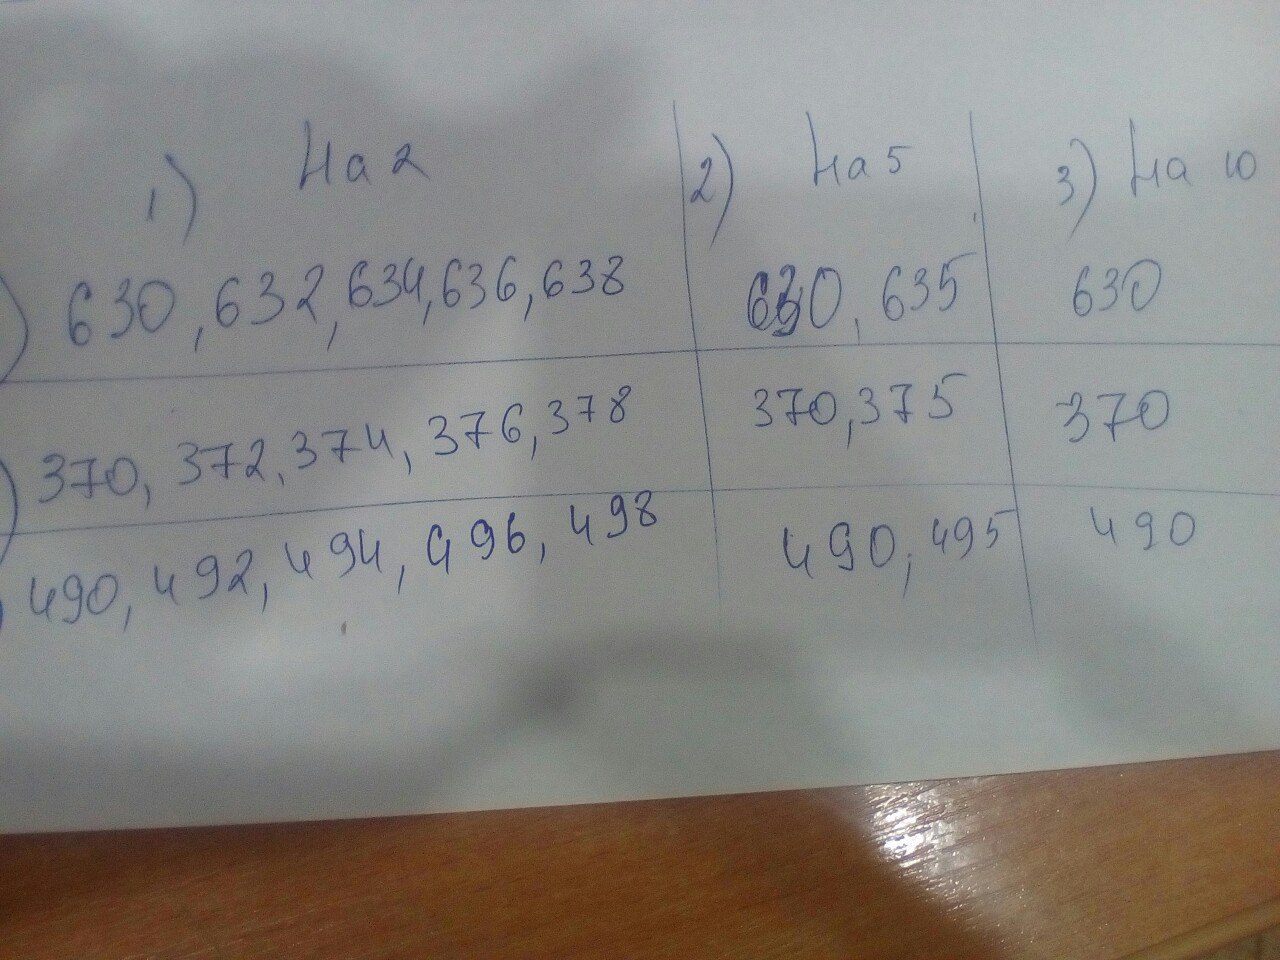 1) На 2 2) На 5 3) На 10
) 630, 632, 634, 636, 638 630, 635 630
) 370, 372, 374, 376, 378 370, 375 370
490, 492, 494, 496, 498 490, 495 490